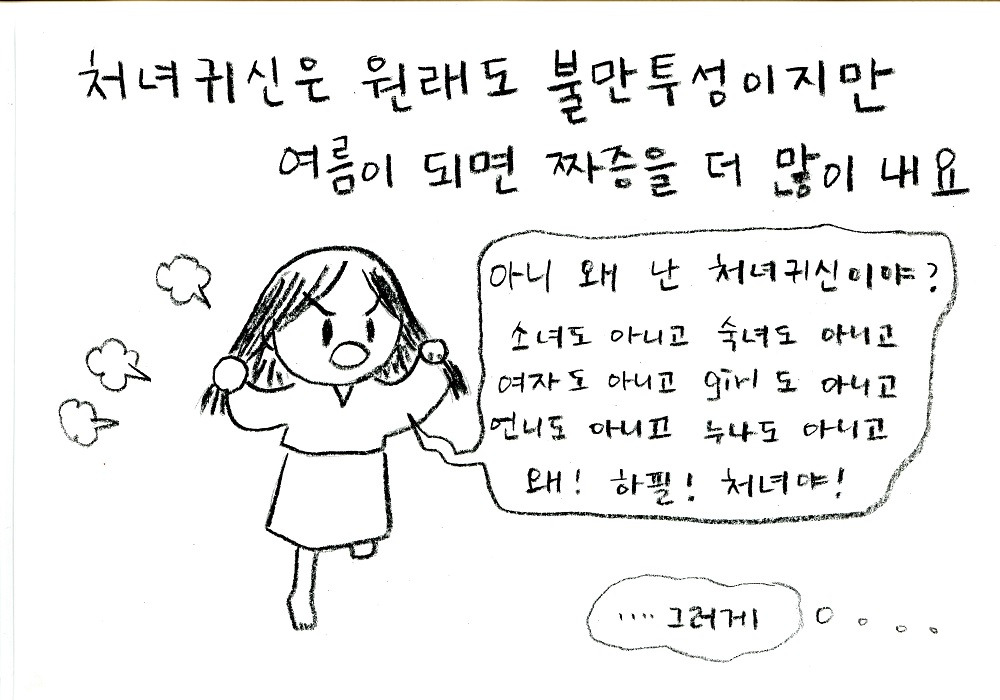 처녀귀신은 원래도 불만투성이지만
여름이 되면 짜증을 더 많이 내요
아니 왜 난 처녀귀신이야?
소녀도 아니고 숙녀도 아니고
여자도 아니고 girl도 아니고
언니도 아니고 누나도 아니고
왜! 하필! 처녀야!
.... 그러게